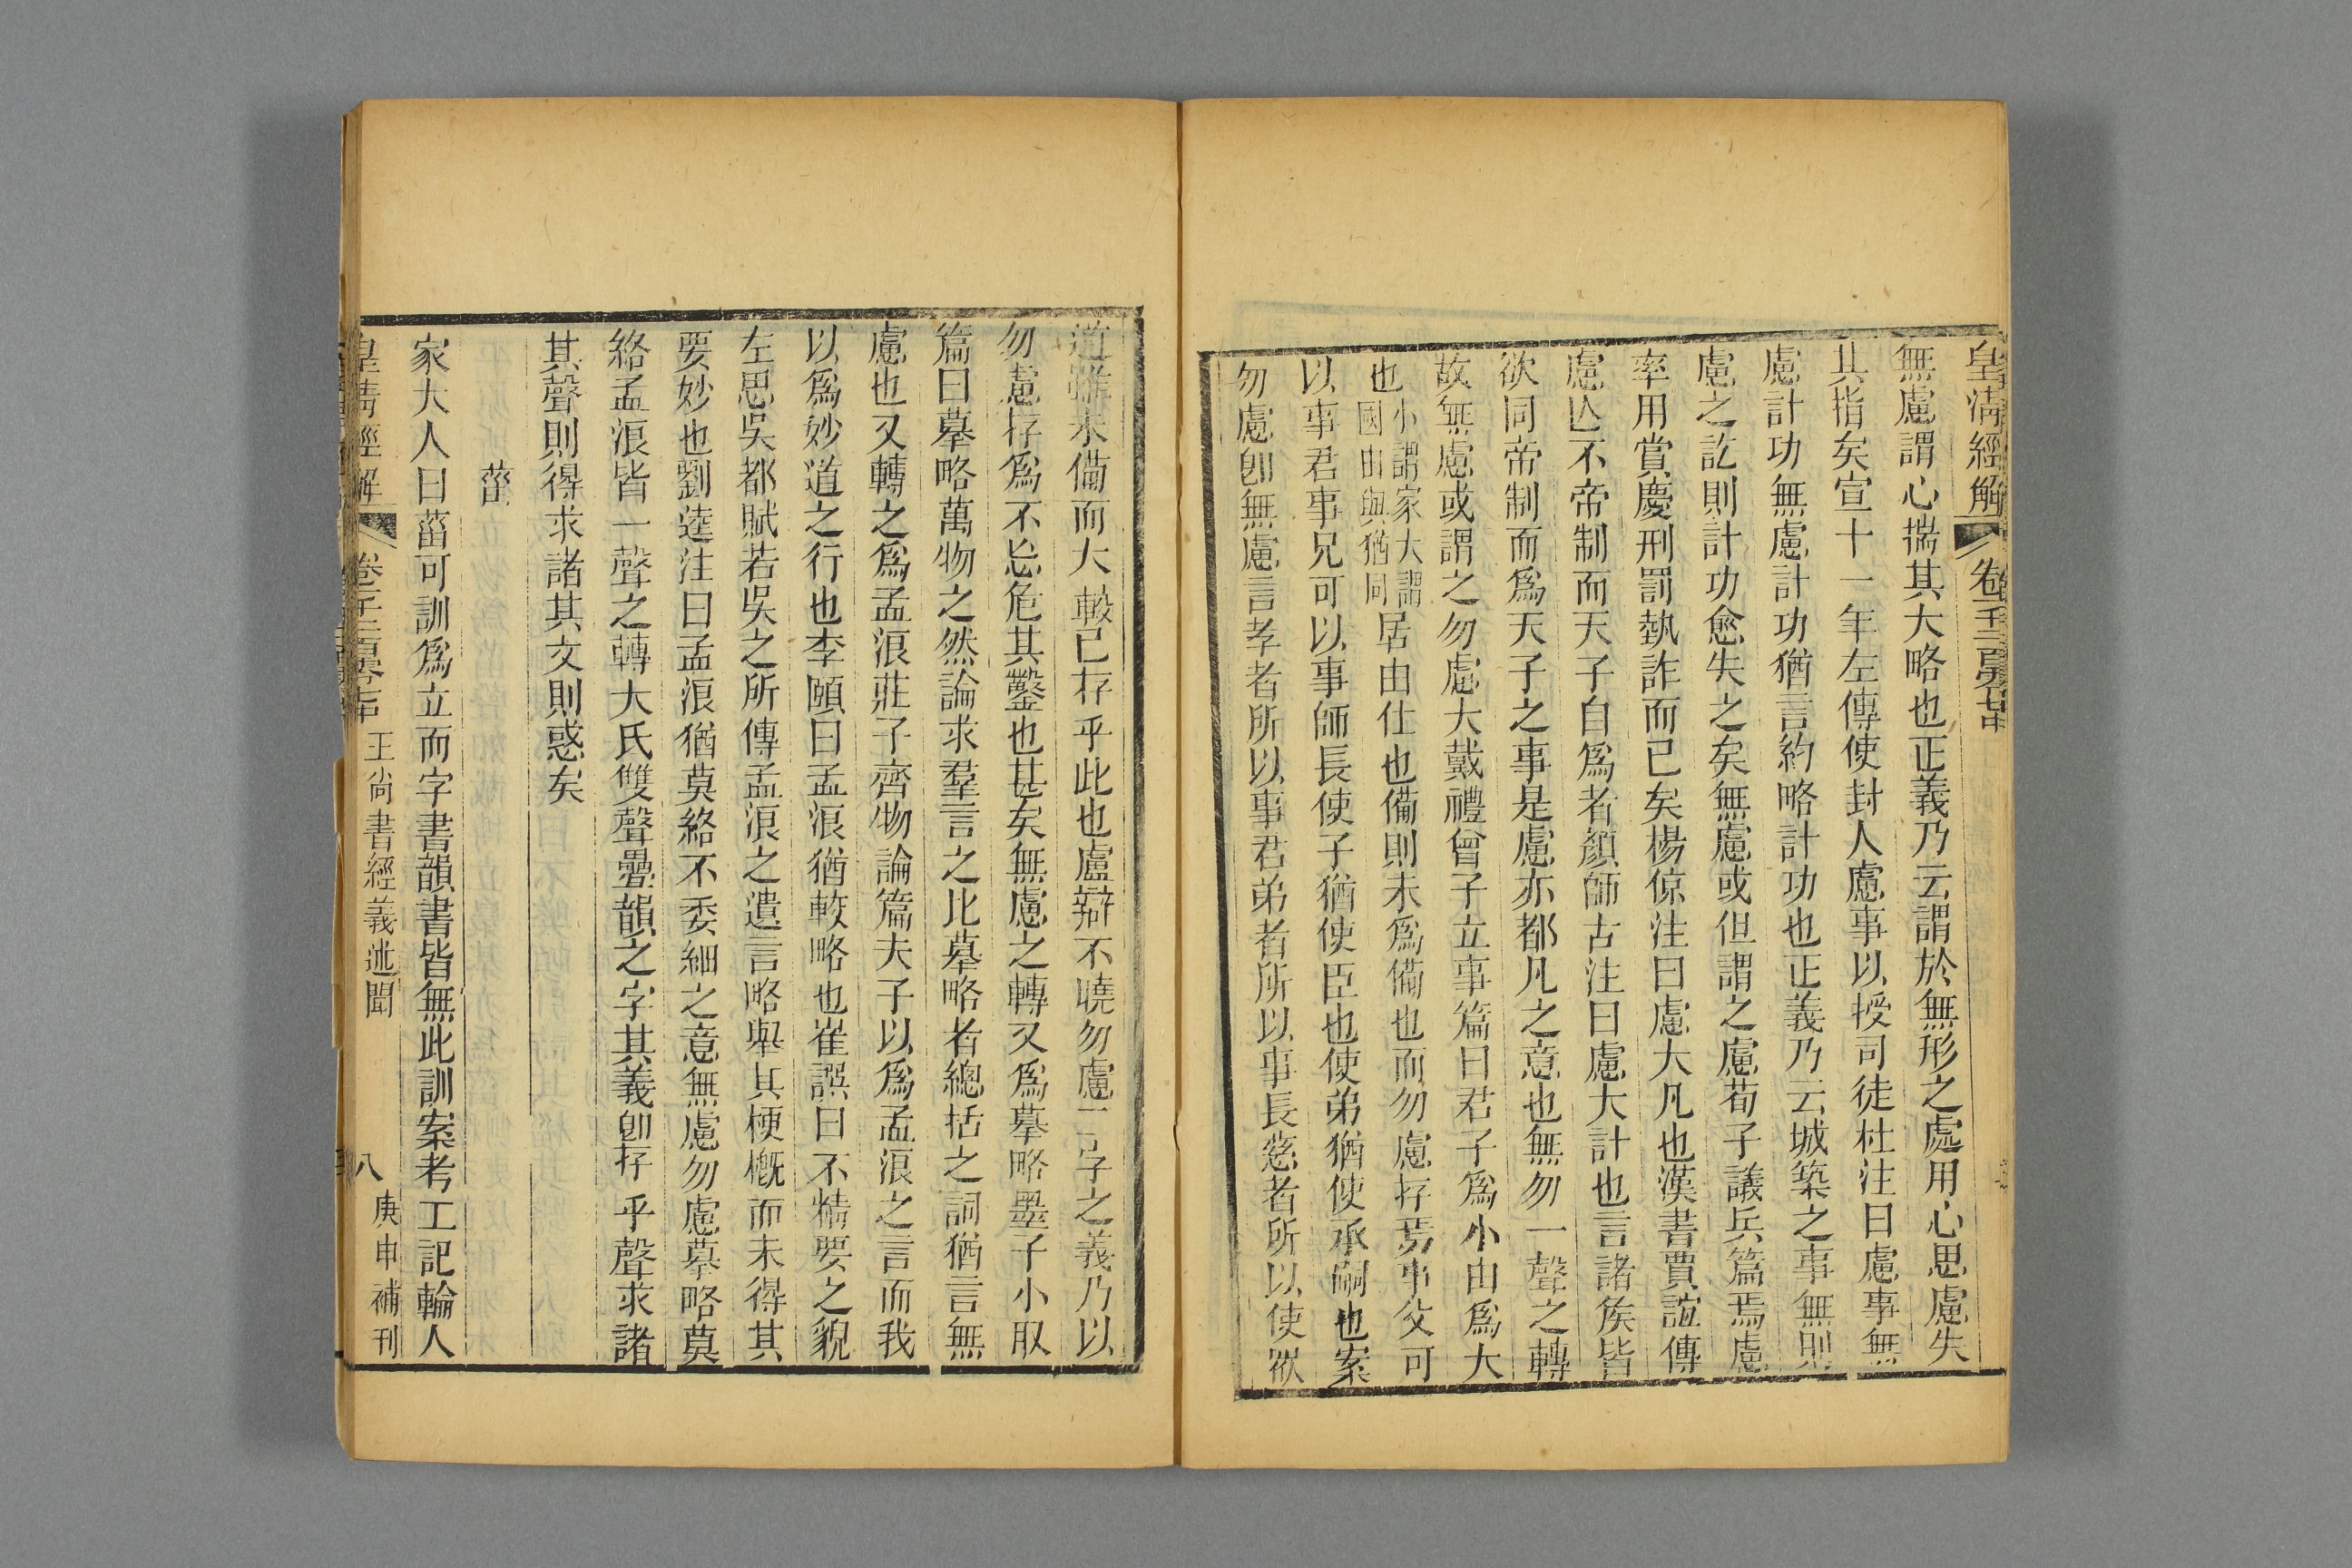 皇淸經解 卷一千二百零七
無慮謂心揣其大略也正義乃云謂於無形之處用心思慮失
其指矣宣十一年左傳使封人慮事以授司徒杜注曰慮事無
慮計功無慮計功猶言約略計功也正義乃云城築之事無則
慮之訖則計功愈失之矣無慮或但謂之慮荀子議兵篇焉慮
率用賞慶刑罰埶詐而已矣楊倞注曰慮大凡也漢書賈誼傳
慮亾不帝制而天子自爲者顏師古注曰慮大計也言諸矦皆
欲同帝制而爲天子之事是慮亦都凡之意也無勿一聲之轉
故無慮或謂之勿慮大戴禮曾子立事篇曰君子爲小由爲大
也小謂家大謂國由與猶同居由仕也備則未爲備也而勿慮存焉事父可
以事君事兄可以事師長使子猶使臣也使弟猶使承嗣也案
勿慮卽無慮言孝者所以事君弟者所以事長慈者所以使衆
道雖未備而大較已存乎此也盧辯不曉勿慮二字之義乃以
勿慮存爲不忘危其鑿也甚矣無慮之轉又爲摹略墨子小取
篇曰摹略萬物之然論求羣言之比摹略者總括之詞猶言無
慮也又轉之爲孟浪莊子齊物論篇夫子以爲孟浪之言而我
以爲妙道之行也李頤曰孟浪猶較略也崔譔曰不精要之貌
左思吳都賦若吳之所傳孟浪之遺言略舉其梗槪而未得其
要妙也劉逵注曰孟浪猶莫絡不委細之意無慮勿慮摹略莫
絡孟浪皆一聲之轉大氐雙聲疊韻之字其義卽存乎聲求諸
其聲則得求諸其文則惑矣
菑
家大人曰菑可訓爲立而字書韻書皆無此訓案考工記輪人
皇淸經解 卷一千二百零七 王尚書經義述聞 八 庚申補刊